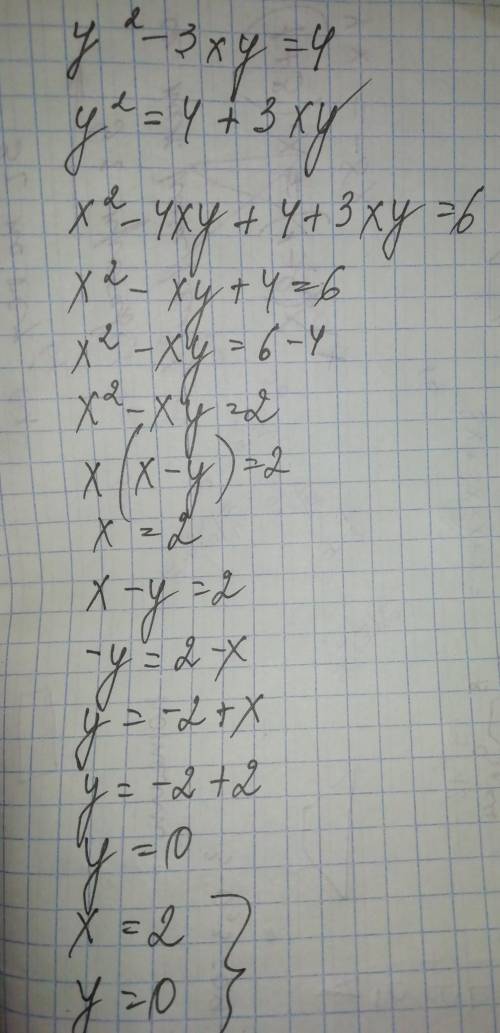 y² - 3xy = 4
y² = 4 + 3xy
x² - 4xy + 4 + 3xy = 6
x² - xy + 4 = 6
x² - xy = 6 - 4
x² - xy = 2
x(x - y) = 2
x = 2
x - y = 2
-y = 2 - x
y = -2 + x
y = -2 + 2
y = 0
x = 2 }
y = 0